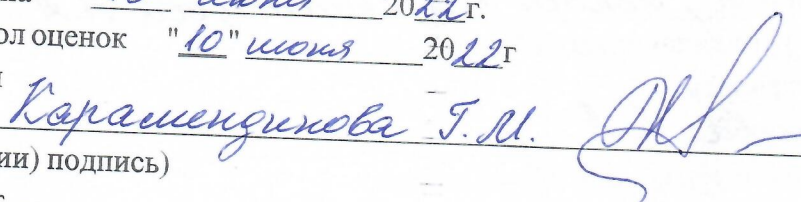 июня 2022г.
ол оценок "10" июня 2022г
Карамендинова Г.М.
ии) подпись)